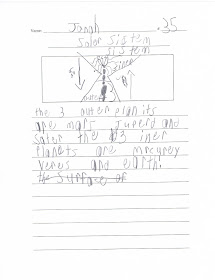 Name Jonah 35
Solar Sistem
Sistem
iner
outer
the 3 outer planits
are mars Juperd and
Saten the 3 iner
Planets are mrcurey
Venes and earth.
the Surface of